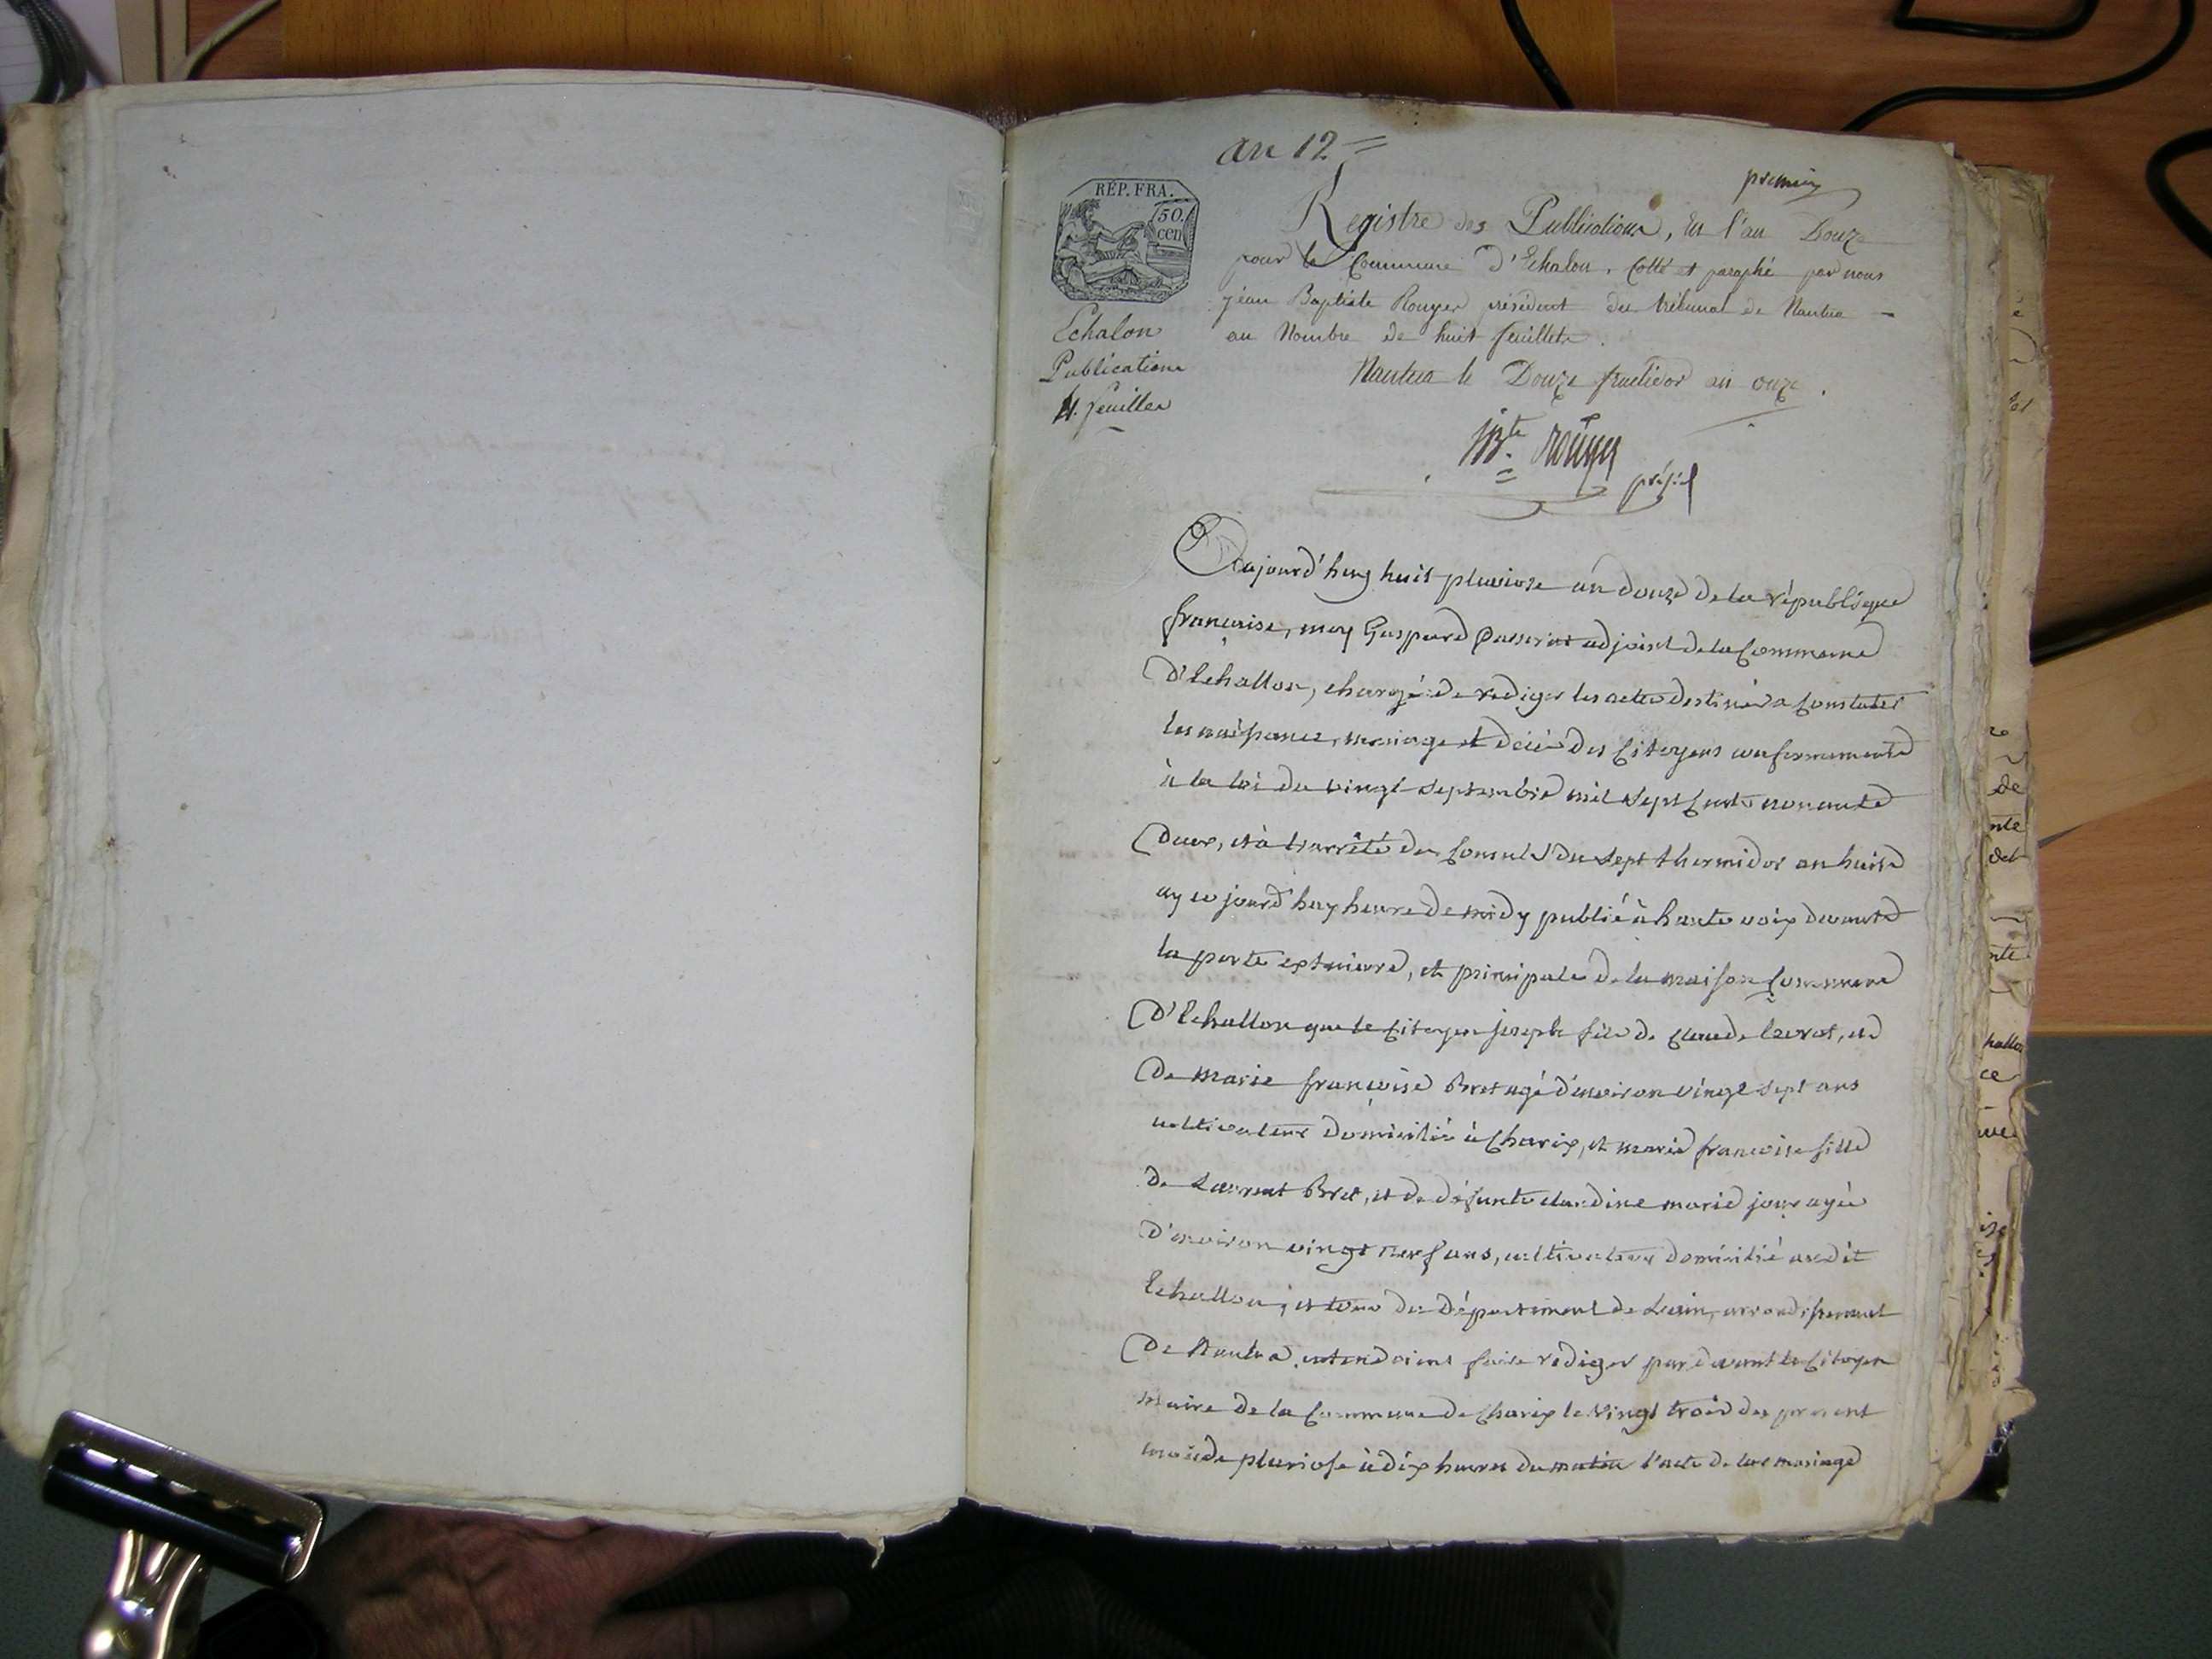 an 12
premier
RÉP. FRA.
50.
cen
Registre des Publications, en l'an Douze
pour la Commune d'Echalon, Cotté et paraphé par nous
jéan Baptiste Rouyer président du tribunal de Nantua
au Nombre de huit feuillets.
Nantua le Douze fructidor an onze.
Echalon
Publications
feuilles
jBte. rouyer
présid
aujourd'huy huit pluviose an douze de la république
francaise, moy Gaspard Passerat adjoint de la Commune
D'Echallon, chargé de rediger les actes destinés a Constater
les naissances, mariage et décés des Citoyens conformement
à la loi du vingt septembre mil sept Cents nonante
Deux, et à l'arrêté des Consuls du sept thermidor an huit
ay ce jourd'huy heure de midy publié à haute voix devant
la porte exterieure, et principale de la maison Commune
D'Echallon que le Citoyen joseph fils de Claude levrat, et
De marie francoise Bret agé d'environ vingt sept ans
cultivateur domicilié à Charix, et marie francoise fille
de Laurent Bret, et de défunte claudine marie joux agée
D'environ vingt neuf ans, cultivateur domicilié audit
Echallon, et tous du Département de Lain, arrondissement
De Nantua, entendoient faire rediger par devant le Citoyen
maire de la Commune de Charix le vingt trois du present
mois de pluviose à dix heures du matin l'acte de leur mariage